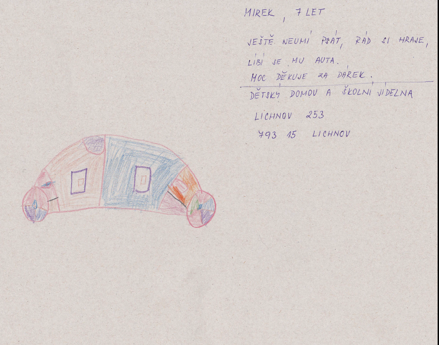 MIREK, 7 LET
JEŠTĚ NEUMÍ PSÁT, RÁD SI HRAJE,
LÍBÍ SE MU AUTA.
MOC DĚKUJE ZA DÁREK.
DĚTSKÝ DOMOV A ŠKOLNÍ JÍDELNA
LICHNOV 253
793 15 LICHNOV